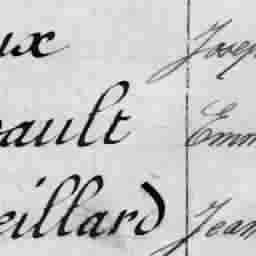 ux Josep
ault Emm
eillard Jean